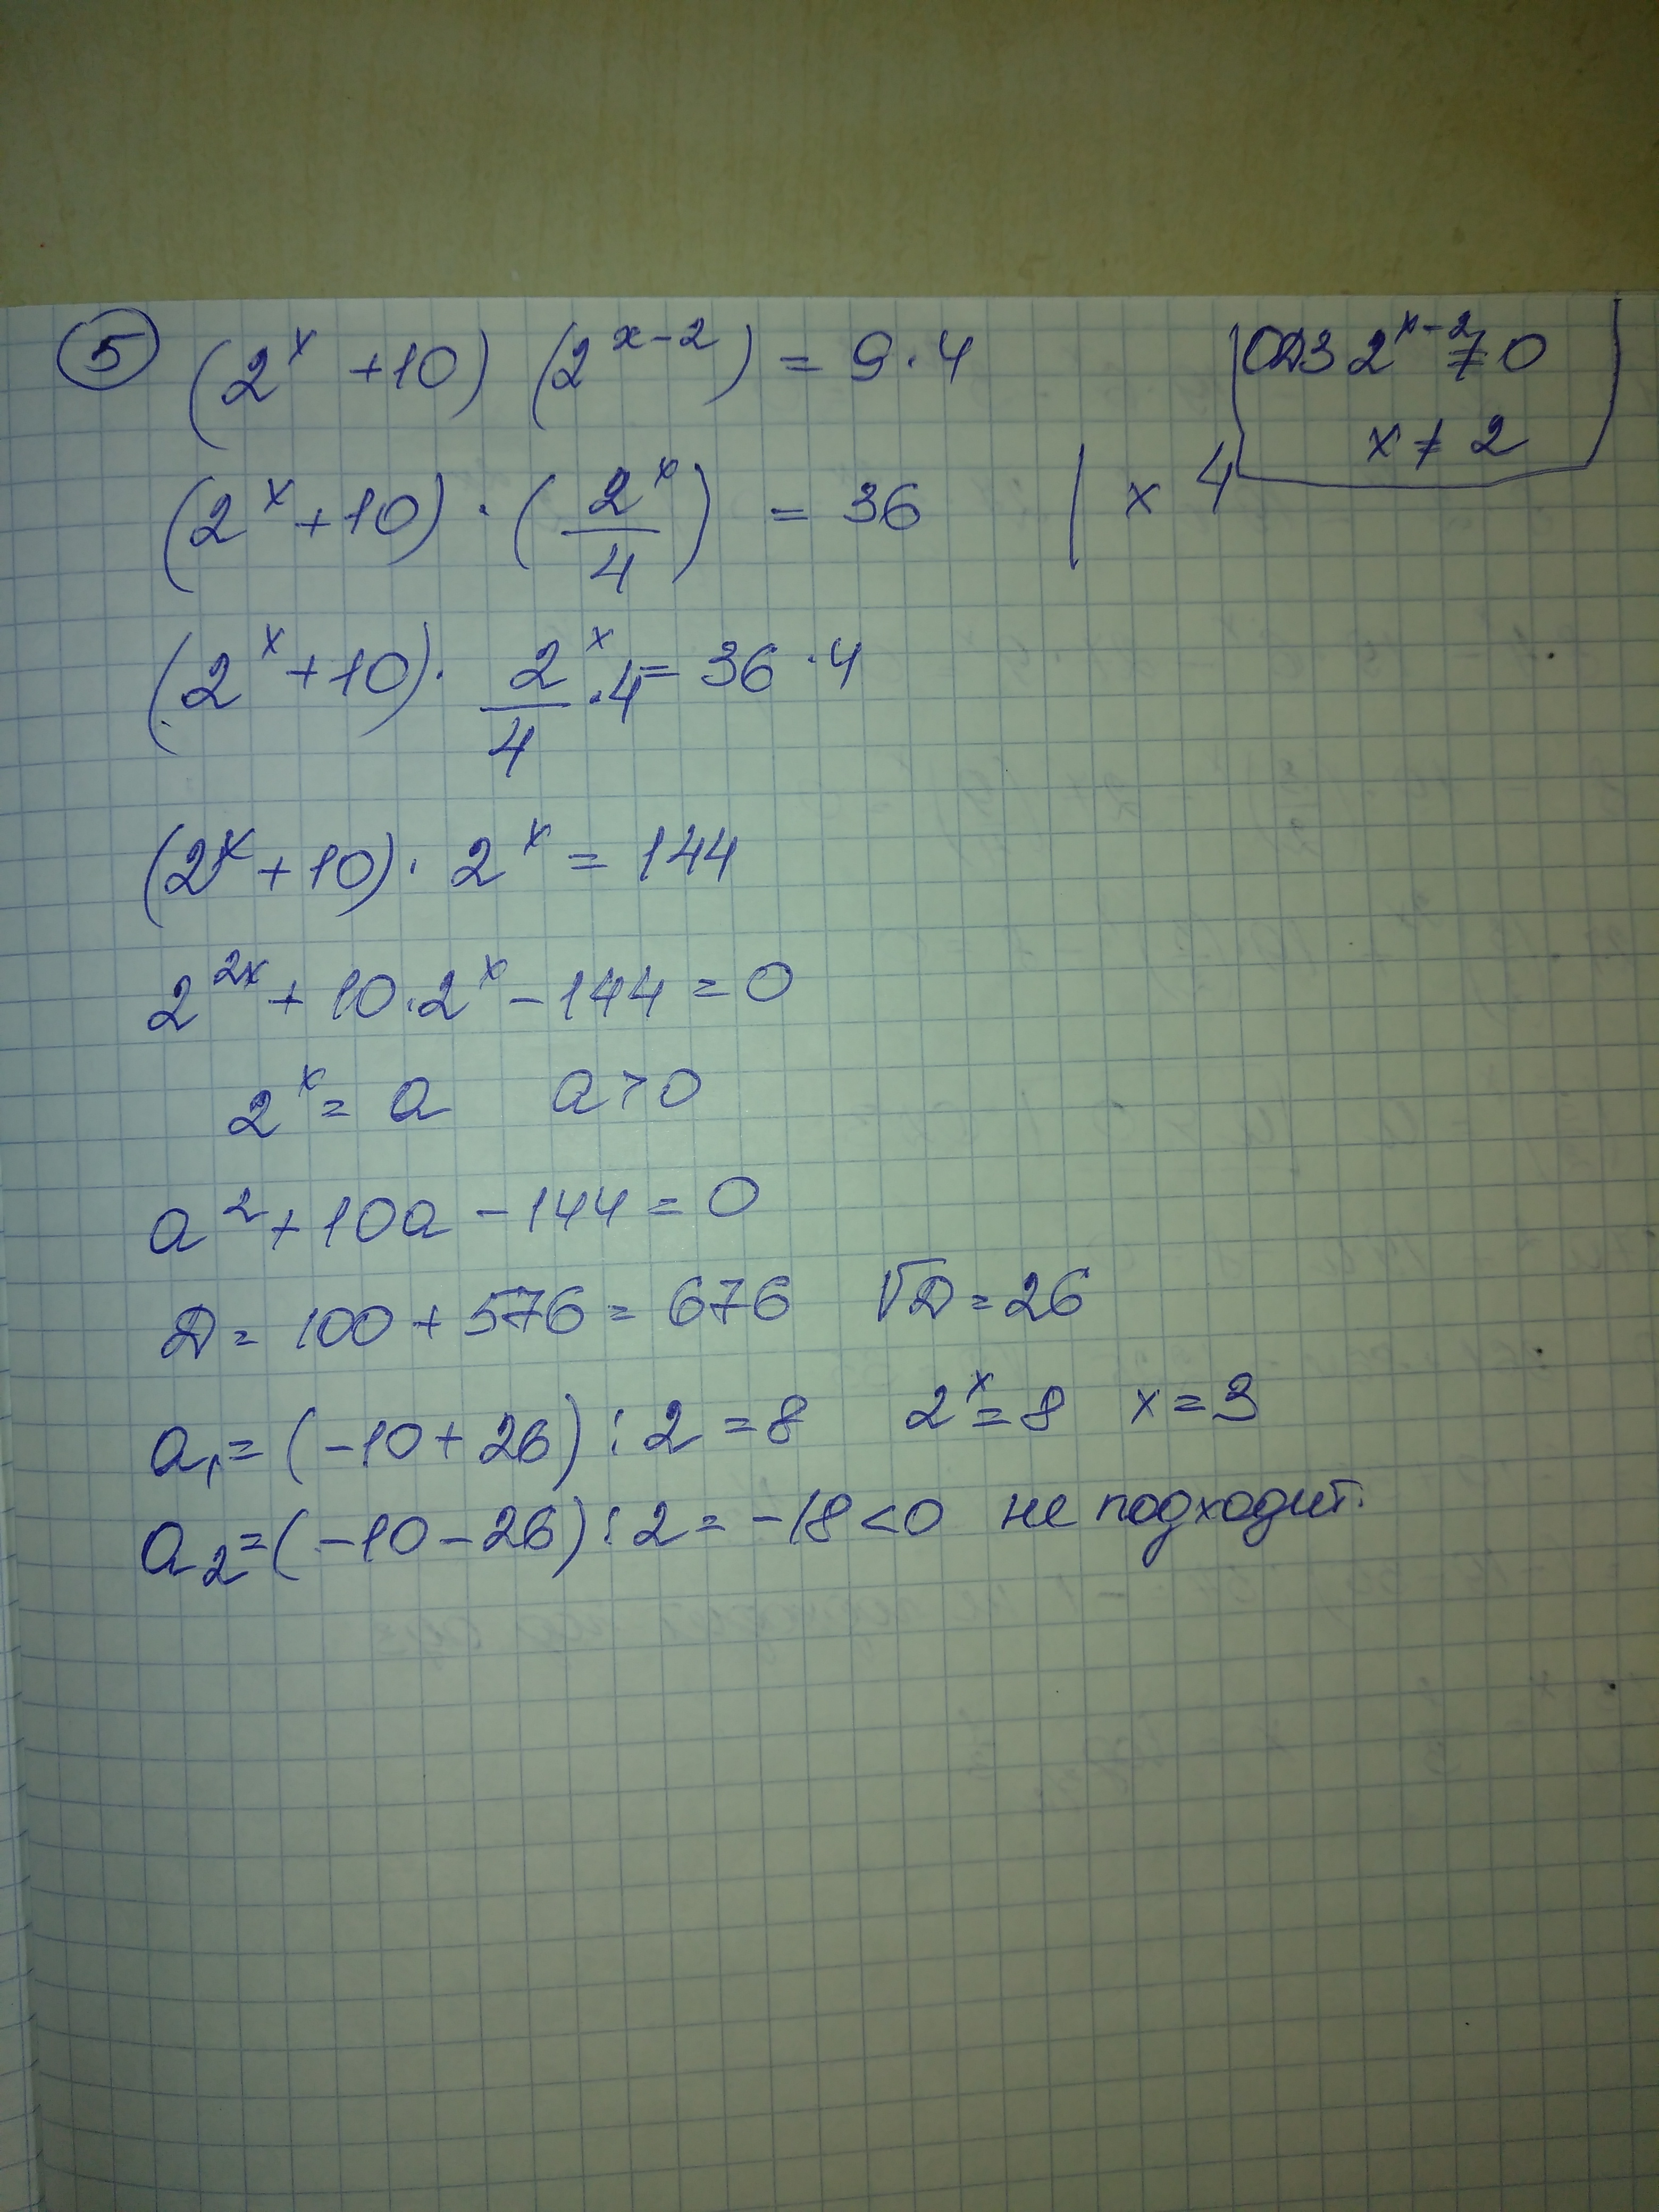 5 (2^x + 10) (2^{x-2}) = 9 · 4
ОДЗ 2^{x-2} ≠ 0
x ≠ 2
(2^x + 10) · (2^x/4) = 36 | x 4
(2^x + 10) · 2^x/4 · 4 = 36 · 4
(2^x + 10) · 2^x = 144
2^{2x} + 10 · 2^x - 144 = 0
2^x = a a > 0
a^2 + 10a - 144 = 0
D = 100 + 576 = 676 √D = 26
a_1 = (-10 + 26) : 2 = 8 2^x = 8 x = 3
a_2 = (-10 - 26) : 2 = -18 < 0 не подходит.